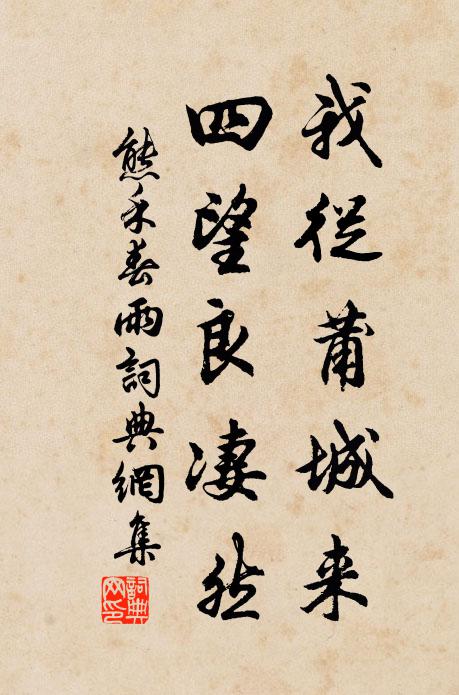 我從莆城来
四望良凄然
熊禾春雨詞典網集
詞典網印